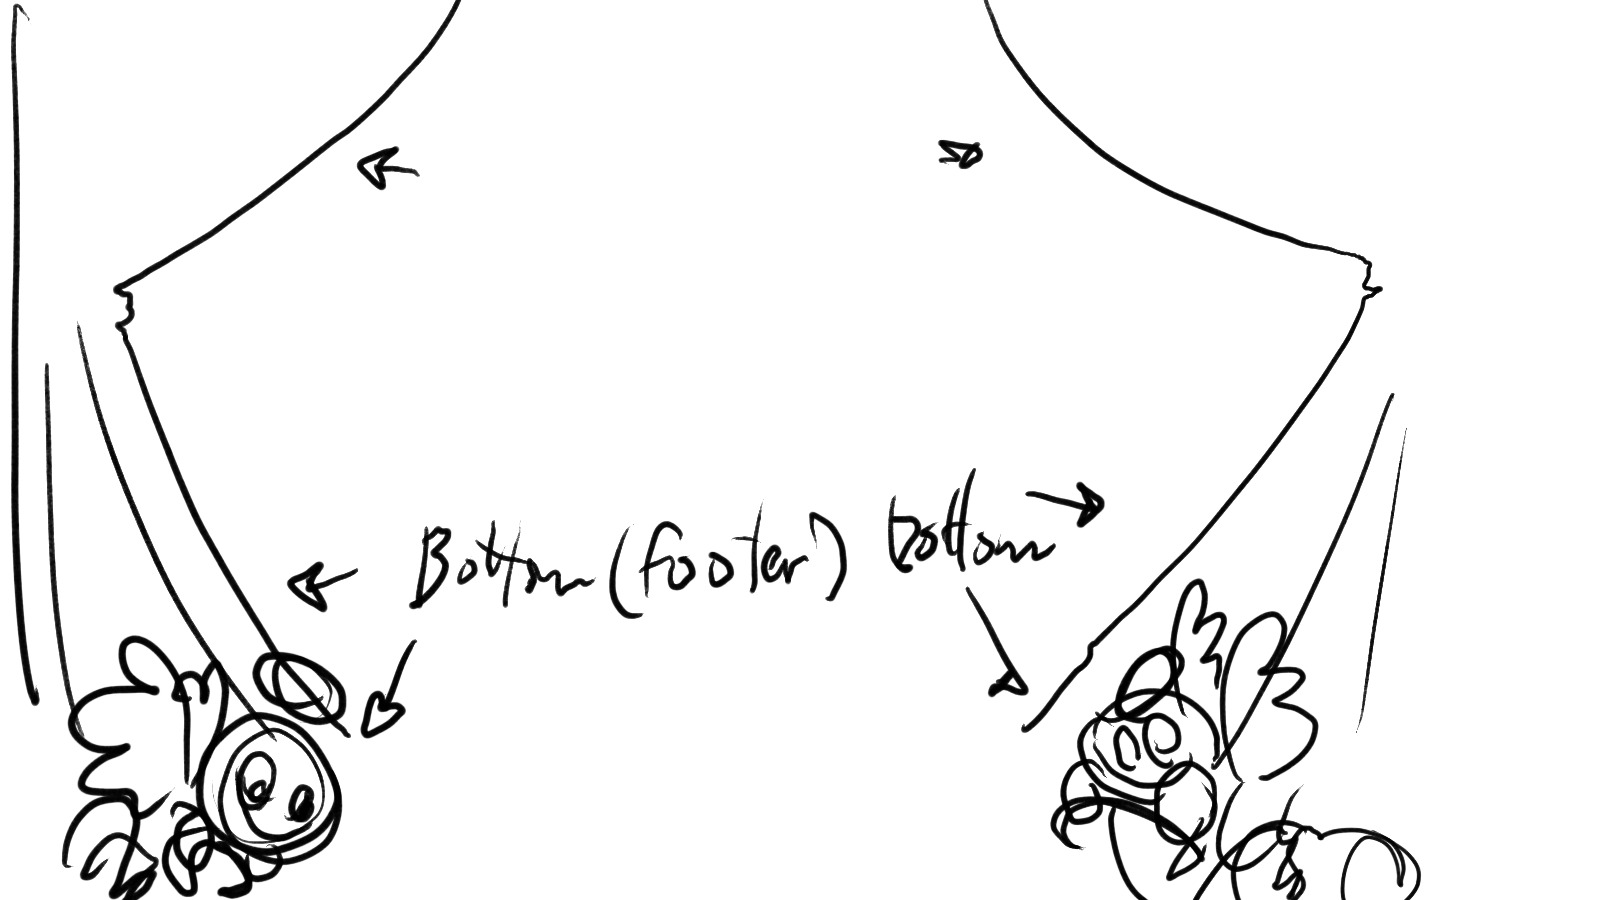 Bottom (footer) bottom